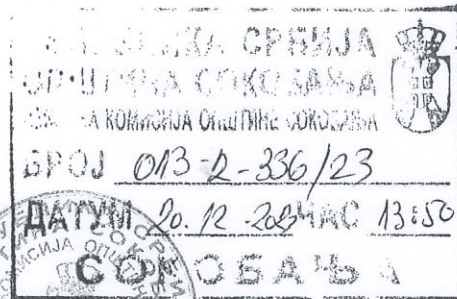 РЕПУБЛИКА СРБИЈА
ОПШТИНА СОКОБАЊА
КОМИСИЈА ОПШТИНЕ СОКОБАЊА
БРОЈ 013-2-336/23
ДАТУМ 20.12.2023 ЧАС 13:50
СОКОБАЊА